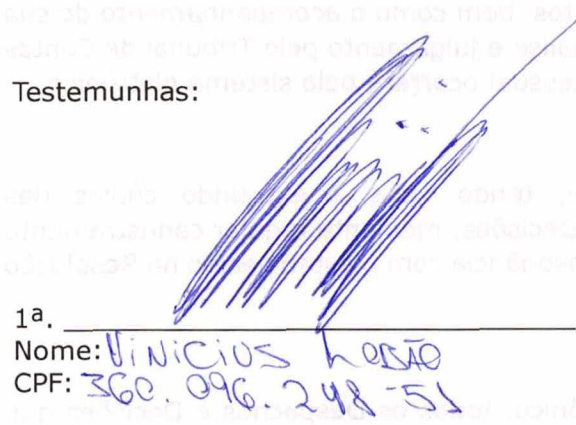 Testemunhas:
1ª.
Nome: ViNiCiUS LOBÃO
CPF: 360.096.248-51